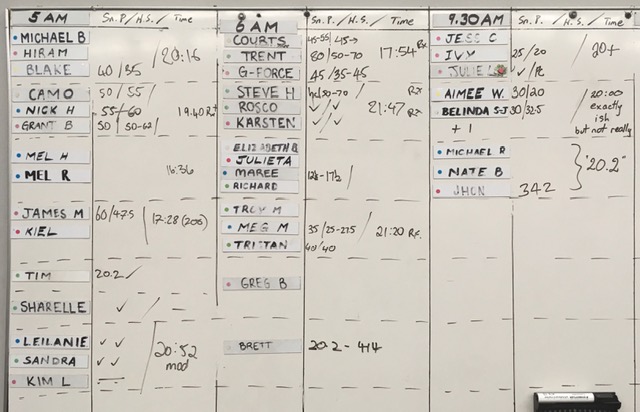 5 AM Sn. P. / H.S. / Time
MICHAEL B
HIRAM 20:16
BLAKE 40/35
CAMO 50/55
NICK H 55/60 19:40 Rx
GRANT B 50
MEL H
MEL R 16:36
JAMES M 60/47.5 17:28 (206)
KIEL
TIM 20.2 ✓
SHARELLE ✓
LEILANIE ✓ ✓ 20:52
SANDRA ✓ ✓ mod
KIM L
6 AM Sn. P. / H.S. / Time
COURTS
TRENT 80/50-70 17:54 Rx
G-FORCE 45/35-45
STEVE H Rx
ROSCO ✓/✓ 21:47 Rx
KARSTEN ✓/✓
ELIZABETH B
JULIETA
MAREE
RICHARD
TROY M
MEG M 35/25-27.5 21:20 Rx
TRISTAN 40/40
GREG B
BRETT 20.2 - 414
9.30AM Sn. P. / H.S. / Time
JESS C
IVY 25/20 20+
JULIE
AIMEE W. 30/20 20:00
BELINDA S-J 30/32.5 exactly
+ 1 ish
but not really
MICHAEL R
NATE B "20.2"
JHON 342